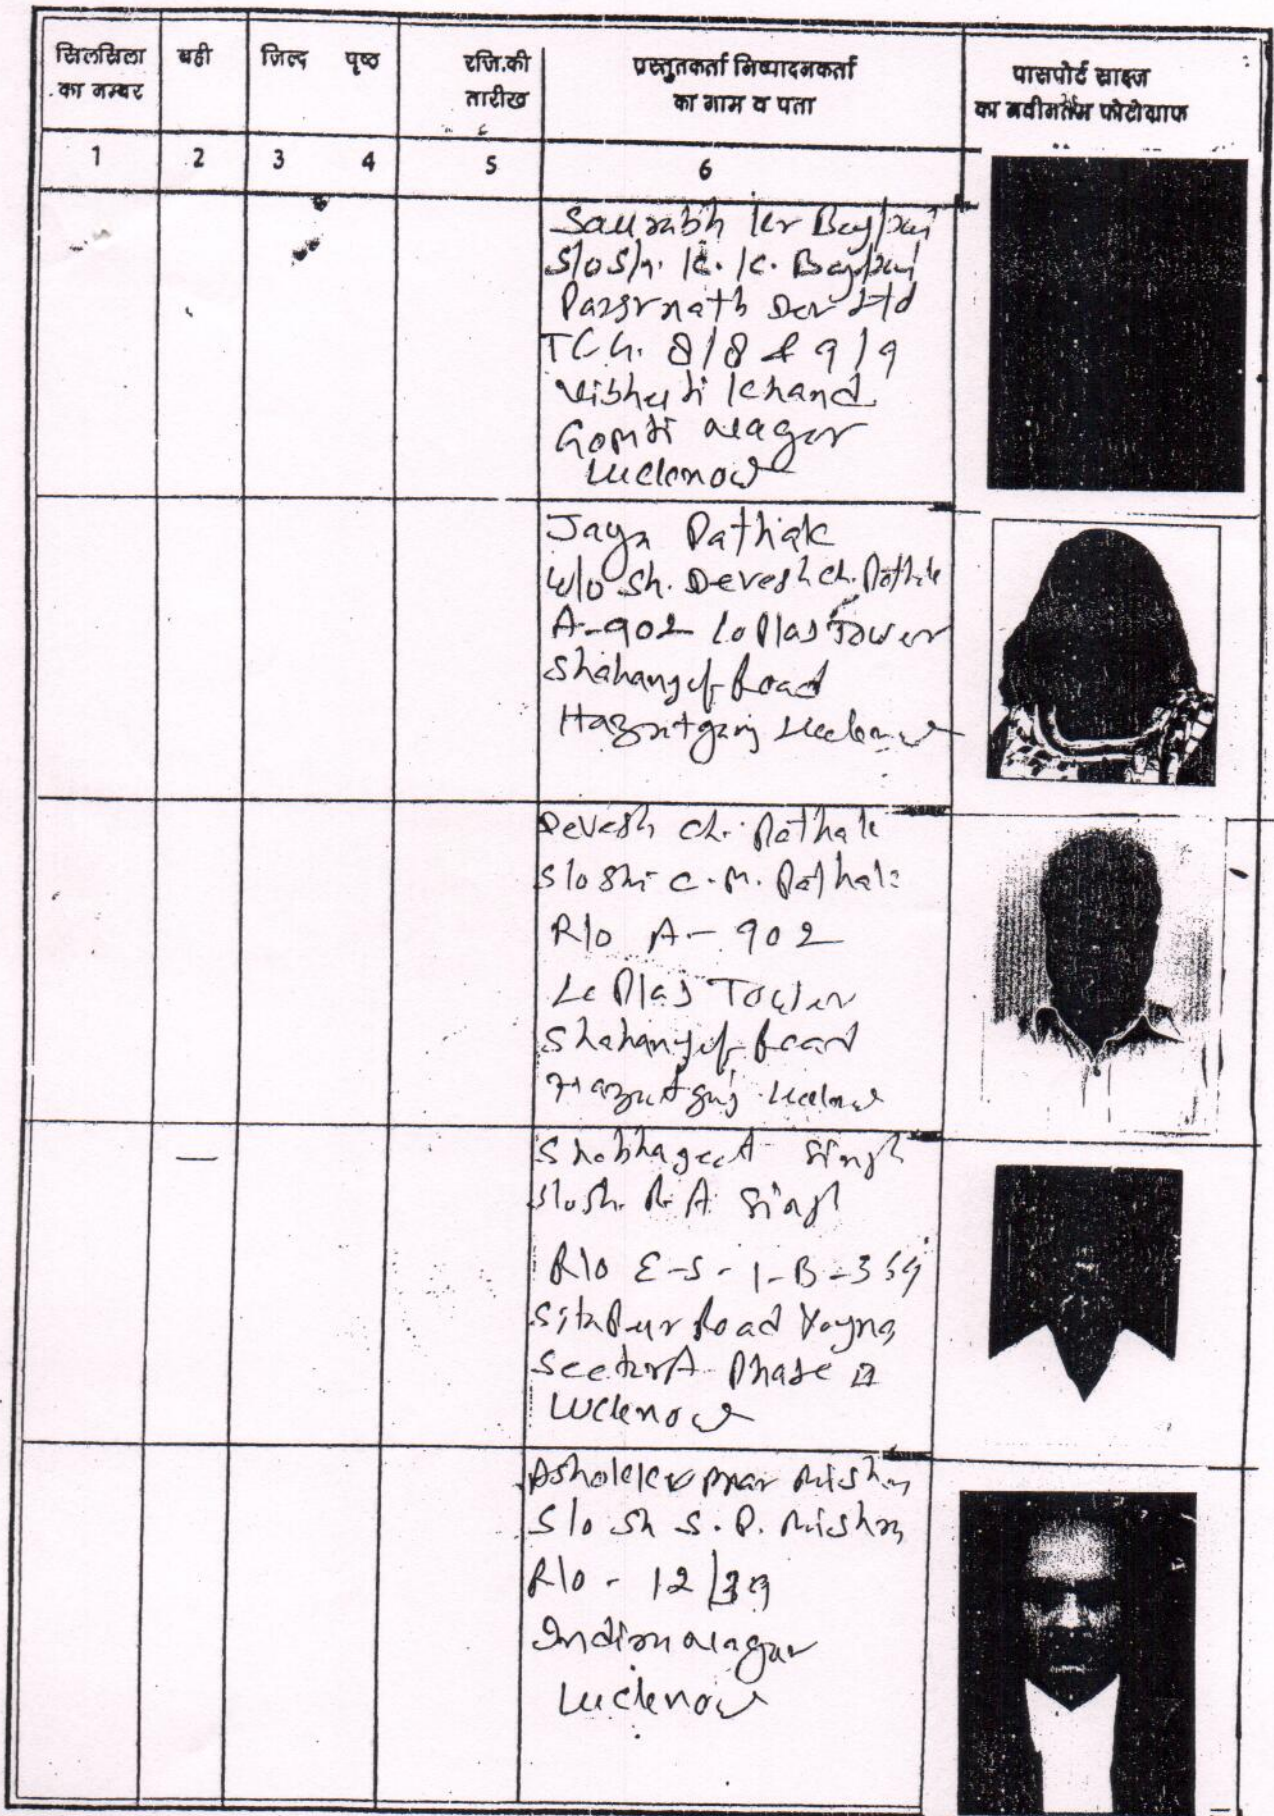 सिलसिला बही जिल्द पृष्ठ रजि.की प्रस्तुतकर्ता निष्पादनकर्ता पासपोर्ट साइज
का नम्बर तारीख का नाम व पता का नवीनतम फोटोग्राफ
1 2 3 4 5 6
Saurabh Kr Bajpai
S/o Sh. K. K. Bajpai
Parsvnath Dev Ltd
TCG. 8/8 & 9/9
Vibhuti Khand
Gomti Nagar
Lucknow
Jaya Pathak
W/o Sh. Devesh Ch. Pathak
A-902 Le Plas Tower
Shahanajaf Road
Hazratganj Lucknow
Devesh Ch. Pathak
S/o Shri C. M. Pathak
R/o A-902
Le Plas Tower
Shahanajaf Road
Hazratganj Lucknow
Shobhageet Singh
S/o Sh. R. A. Singh
R/o E-S-1-B-359
Sitapur Road Yojna
Sector A Phase II
Lucknow
Ashok Kumar Mishra
S/o Sh S. P. Mishra
R/o - 12/39
Indira Nagar
Lucknow